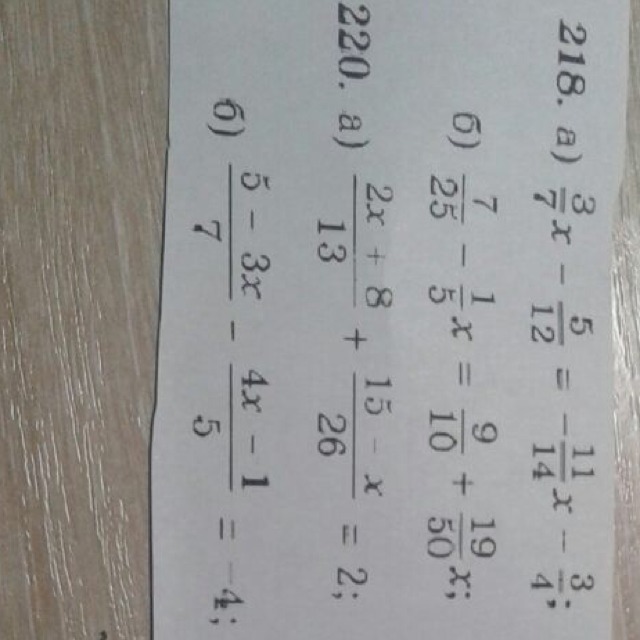 218. а) 3/7 x − 5/12 = −11/14 x − 3/4;
б) 7/25 − 1/5 x = 9/10 + 19/50 x;
220. а) (2x + 8)/13 + (15 − x)/26 = 2;
б) (5 − 3x)/7 − (4x − 1)/5 = −4;